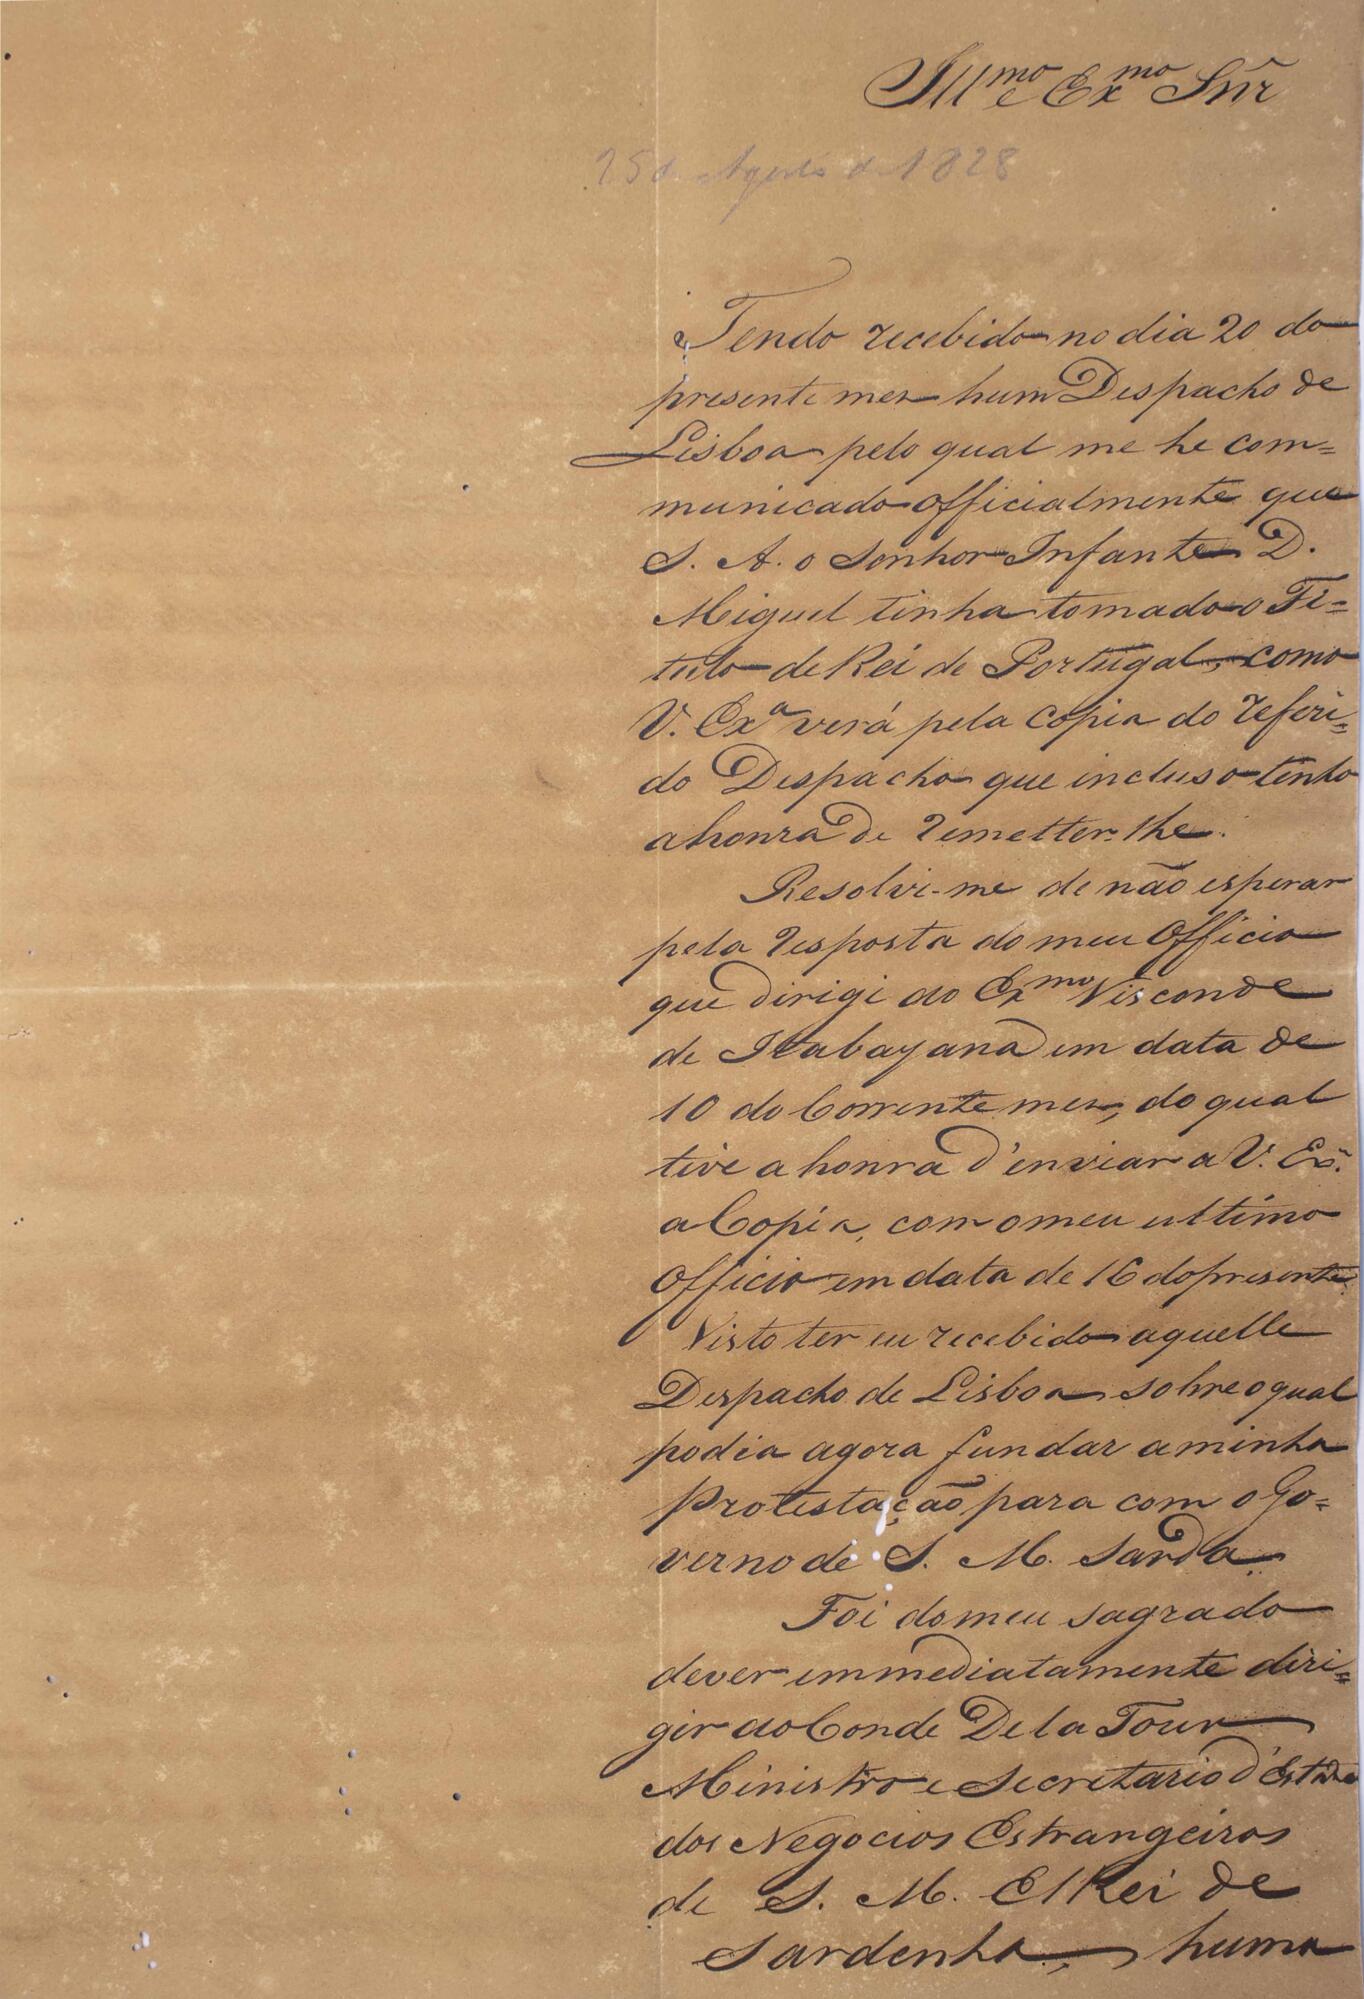 Ill.mo e Ex.mo Snr
25 de Agosto de 1828
Tendo recebido no dia 20 do
presente mez hum Despacho de
Lisboa pelo qual me he com=
municado officialmente que
S. A. o Senhor Infante D.
Miguel tinha tomado o Ti=
tulo de Rei de Portugal, como
V. Ex.a verá pela copia do referi=
do Despacho que incluso tenho
a honra de remetter-lhe.
Resolvi-me de não esperar
pela resposta do meu Officio
que dirigi ao Ex.mo Visconde
de Itabayana em data de
10 do Corrente mez, do qual
tive a honra d'enviar a V. Ex.a
a Copia, com o meu ultimo
Officio em data de 16 do presente.
Visto ter eu recebido aquelle
Despacho de Lisboa sobre o qual
podia agora fundar a minha
Protestação para com o Go=
verno de S. M. Sarda.
Foi do meu sagrado
dever immediatamente diri=
gir ao Conde De la Tour
Ministro e Secretario d'Estado
dos Negocios Estrangeiros
de S. M. ElRei de
Sardenha, huma